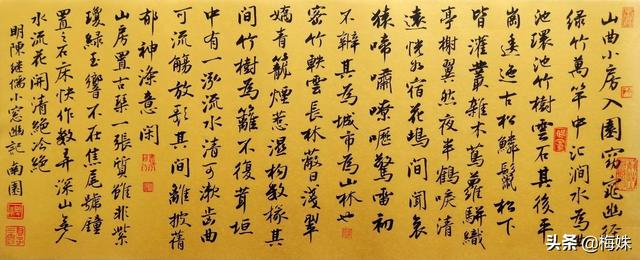 山曲小房入園窈窕幽径
緑竹萬竿中汇澗水為曲
池環池竹樹雲石其後平
崗逶迤古松鱗鬣松下
皆灌叢雜木蔦蘿駢織
亭榭翼然夜半鶴唳清
遠恍如宿花塢間聞哀
猿啼嘯嘹嚦驚霜初
不辨其為城市為山林也
密竹軼雲長林蔽日淺翠
嬌青籠煙惹濕构數椽其
間竹樹為籬不復葺垣
中有一泓流水清可漱齒曲
可流觴放歌其間離披蒨
郁神滌意闲
山房置古琴一張質雖非紫
瓊緑玉響不在焦尾號鐘
置之石床快作數弄深山無人
水流花開清絕冷絕
明陳继儒小窓幽記 南園
头条@梅姝